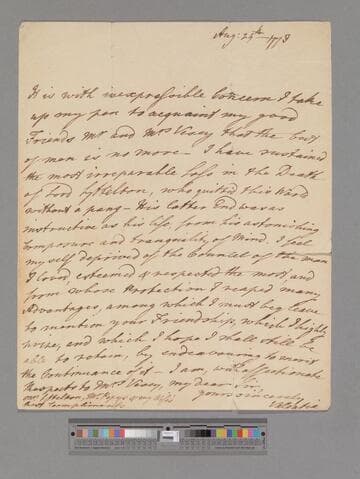 Aug: 25th 1773
It is with inexpressible Concern I take
up my pen to acquaint my good
Friends Mr. and Mrs. Vesey that the best
of men is no more – I have sustained
the most irreparable Loss in the Death
of Lord Lyttelton, who quitted this World
without a pang – His latter End was as
instructive as his life, from his astonishing
Composure and tranquility of Mind. I feel
my self deprived of the Councel of the man
I loved, esteemed & respected the most and
from whose Protection I reaped many
Advantages, among which I must beg leave
to mention your Friendship, which I highly
prize, and which I hope I shall still be
able to retain, by endeavouring to merit
the Continuance of it – I am, with affectionate
Respects to Mrs. Vesey, my dear Sir
yours sincerely
Valentia
Mrs. Lyttelton, Mr. Pepys & my Wife
best Compliments